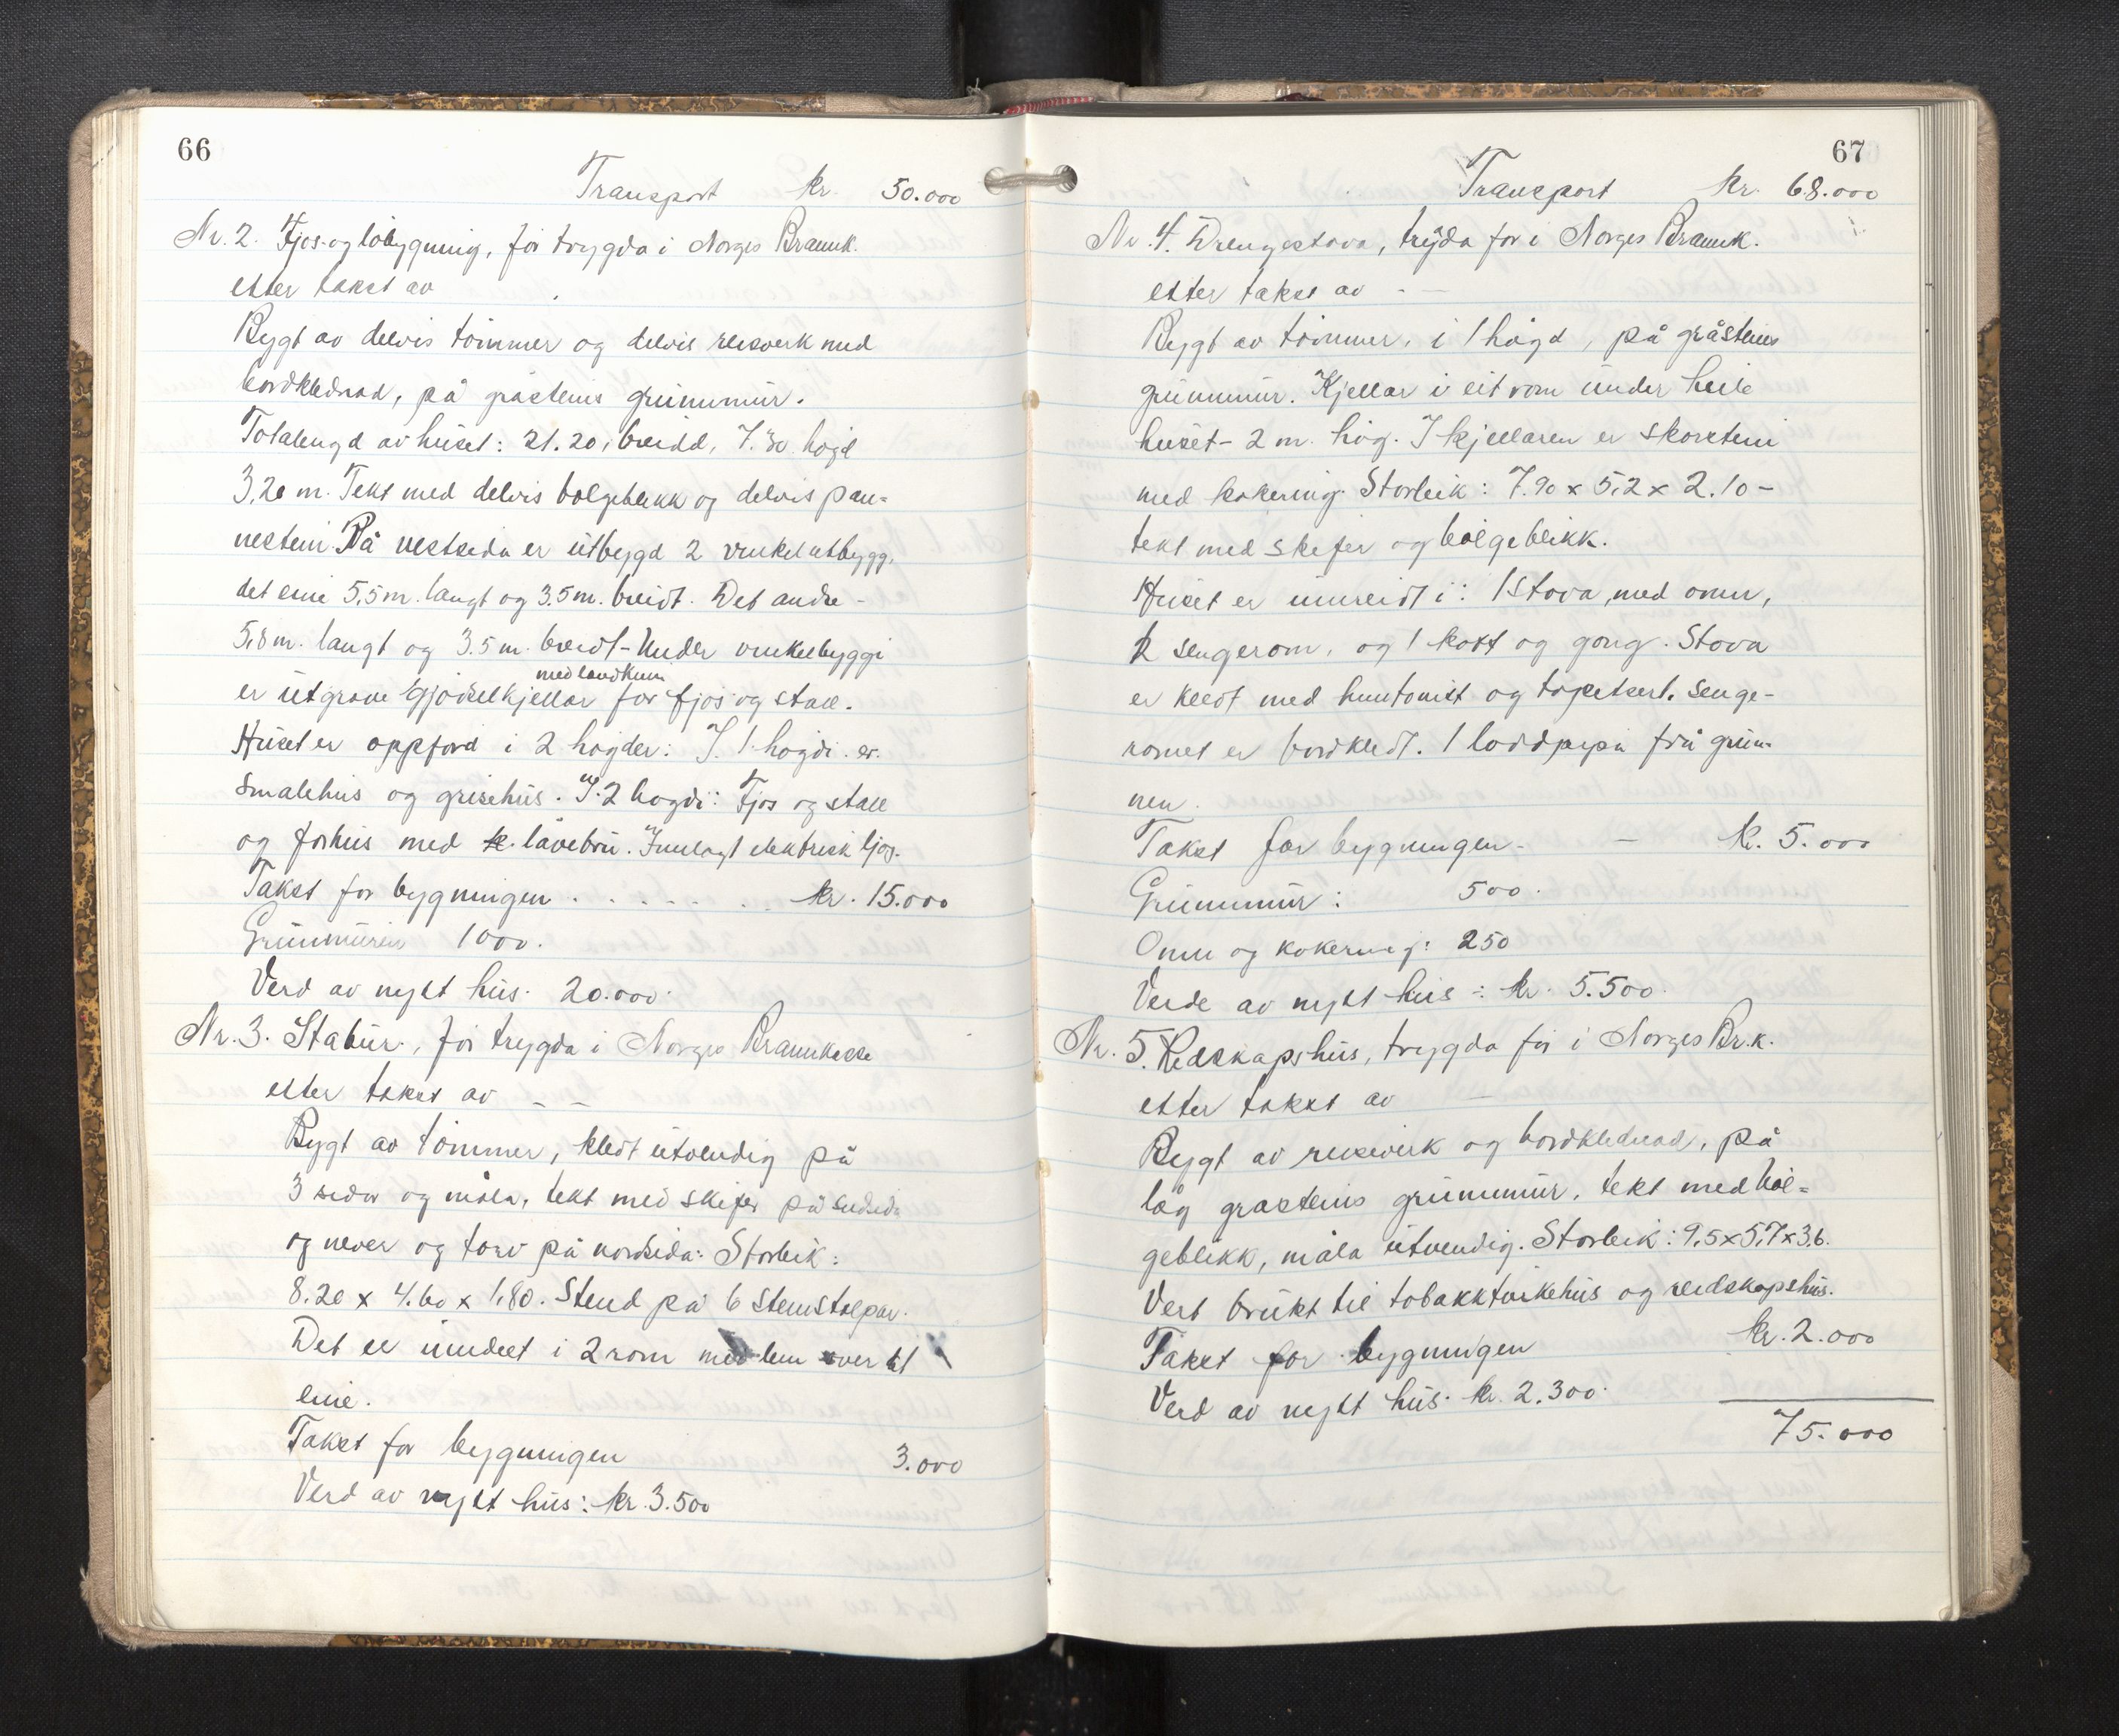 66
Transport kr. 50.000
Nr. 2. Fjos og løbygning, før trygda i Norges Brannk.
etter takst av
Bygt av delvis tømmer og delvis reisverk med
bordklednad, på gråsteins grunnmur.
Totalengd av huset: 21.20, breidd, 7.30 høgd
3,20 m. Tekt med delvis bølgeblikk og delvis pan=
nestein. På vestsida er utbygd 2 vinkelutbygg,
det eine 5,5 m. langt og 3.5 m. breidt. Det andre -
5,8 m. langt og 3.5 m. breidt - Under vinkelbyggi
med landkum
er utgrave gjødselkjellar for fjos og stall.
Huset er oppførd i 2 høgder: I 1. høgdi er.
Smalehus og grisehus. I 2 høgdi: Fjos og stall
og forhus med låvebru. Innlagt elektrisk ljos.
Takst for bygningen . . . . . . . kr. 15.000
Grunnmuren 1000.
Verd av nytt hus. 20.000.
Nr. 3. Stabur, før trygda i Norges Brannkasse
etter takst av - -
Bygt av tømmer, kledt utvendig på
3 sidor og måla, tekt med skifer på sudsida
og never og torv på nordsida: Storleik:
8.20 x 4.60 x 1,80. Stend på 6 steinstolpar.
Det er innreet i 2 rom med lem over til
eine.
Takst for bygningen 3.000
Verd av nytt hus: kr. 3.500
67
Transport kr. 68.000
Nr. 4. Drengestova, trygda før i Norges Brannk.
etter takst av - -
Bygt av tømmer, i 1 høgd, på gråsteins
grunnmur. Kjellar i eit rom under heile
huset - 2 m. høg. I kjellaren er skorstein
med kokering. Storleik: 7.90 x 5,2 x 2.10 -
tekt med skifer og bølgeblikk.
Huset er innreidt i: 1 Stova, med omn,
2 sengerom, og 1 kott og gong. Stova
er kledt med huntonitt og tapetsert. Senge-
romet er bordkledt. 1 loddpipa frå grun-
nen.
Takst for bygningen - - kr. 5.000
Grunnmur: 500.
Omn og kokering: 250
Verde av nytt hus : kr. 5.500.
Nr. 5. Redskapshus, trygda før i Norges Br.k.
etter takst av -
Bygt av reisverk og bordklednad, på
låg gråsteins grunnmur, tekt med bøl=
geblikk, måla utvendig. Storleik: 9,5 x 5,7 x 3,6.
Vert brukt til tobakktørkehus og reidskapshus.
Takst for bygningen kr. 2.000
Verd av nytt hus. kr. 2.300.
75.000